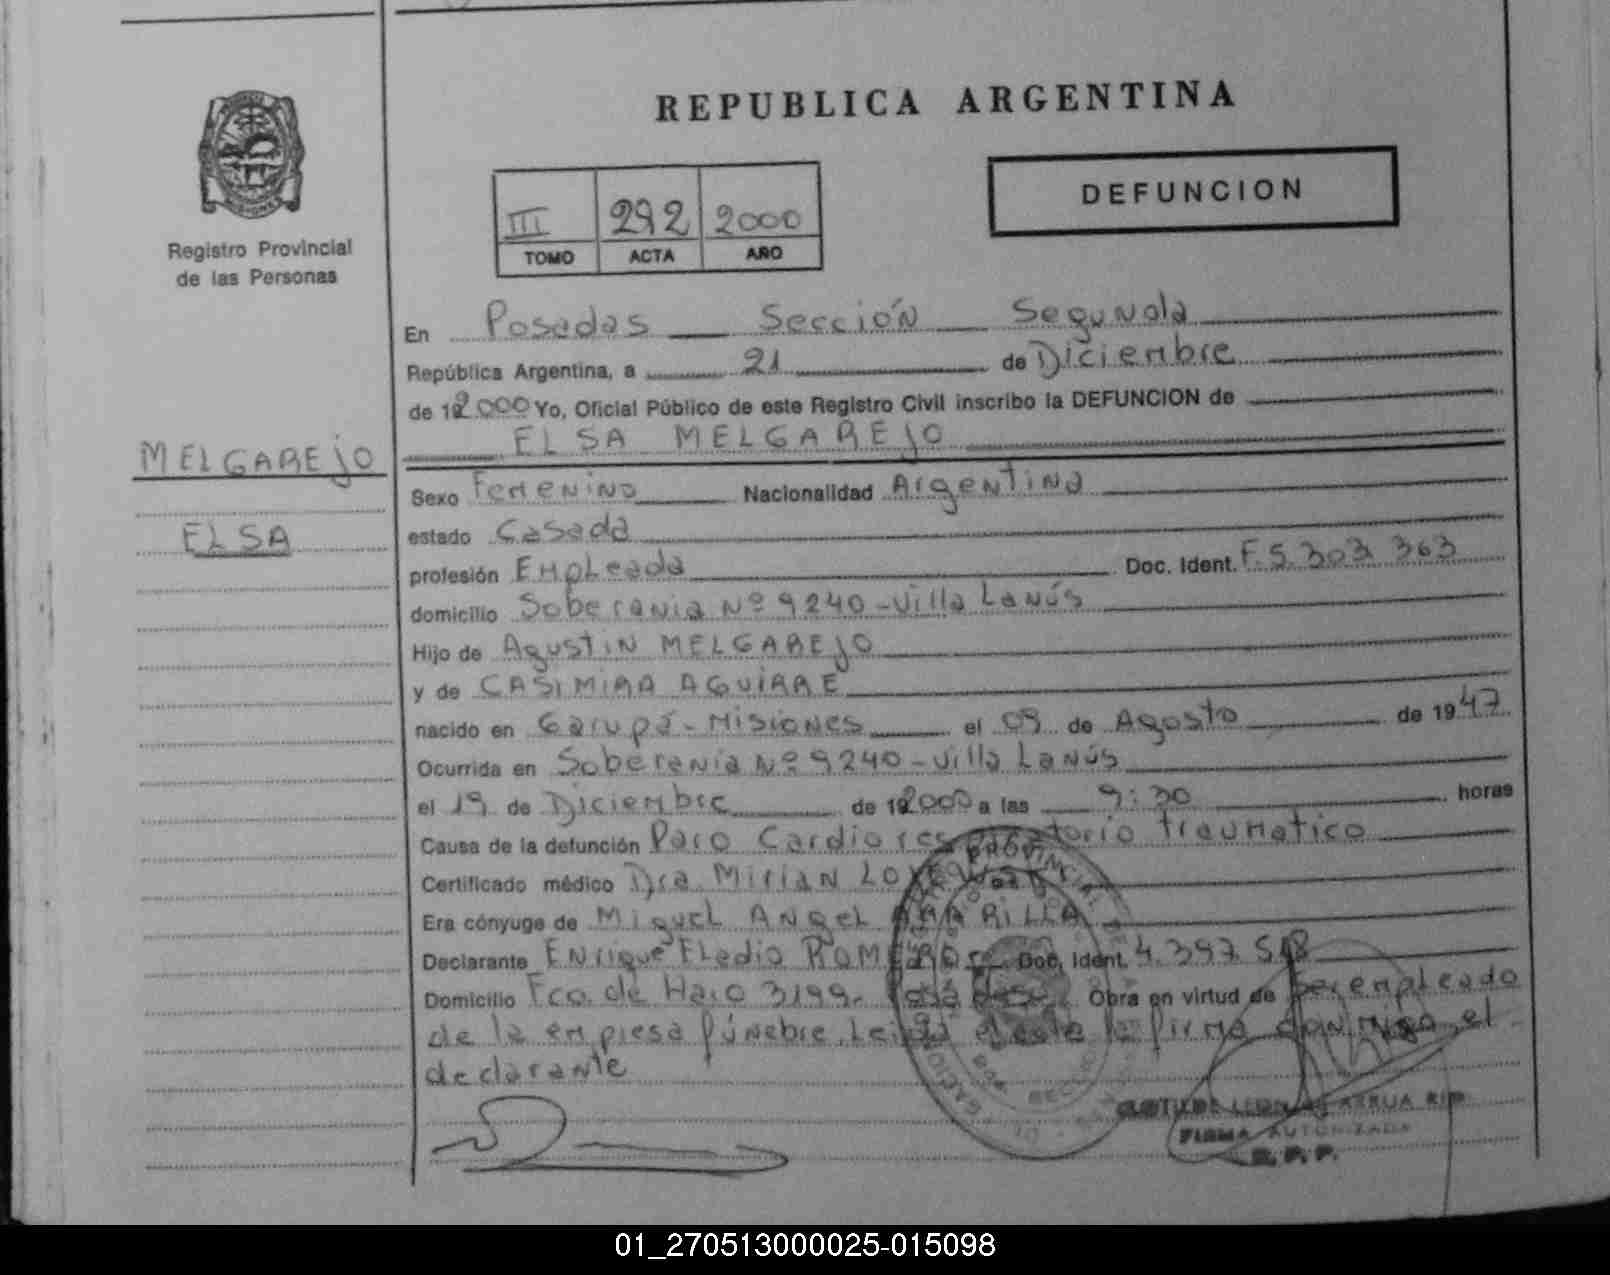 REPUBLICA ARGENTINA
DEFUNCION
III 292 2000
TOMO ACTA AÑO
MISIONES
Registro Provincial
de las Personas
En Posadas Sección Segunda
República Argentina, a 21 de Diciembre
de 2000 Yo, Oficial Público de este Registro Civil inscribo la DEFUNCION de
ELSA MELGAREJO
MELGAREJO
ELSA
Sexo Femenino Nacionalidad Argentina
estado Casada
profesión Empleada Doc. Ident. F. 5.303 363
domicilio Soberania Nº 9240 - Villa Lanús
Hijo de Agustin MELGAREJO
y de CASIMIRA AGUIRRE
nacido en Garupá - Misiones el 09 de Agosto de 1947
Ocurrida en Soberania Nº 9240 - Villa Lanús
el 19 de Diciembre de 2000 a las 9:30 horas
Causa de la defunción Paro Cardiorespiratorio traumatico
Certificado médico Dra. Mirian
Era cónyuge de Miguel Angel AMARILLA
Declarante Enrique Eladio ROMERO Doc. Ident. 4.397.518
Domicilio Fco. de Haro 3199. Posadas Obra en virtud de ser empleado
de la empresa fúnebre. Leida el acta la firma conmigo el
declarante
FIRMA AUTORIZADA
R. P. P.
01_270513000025-015098